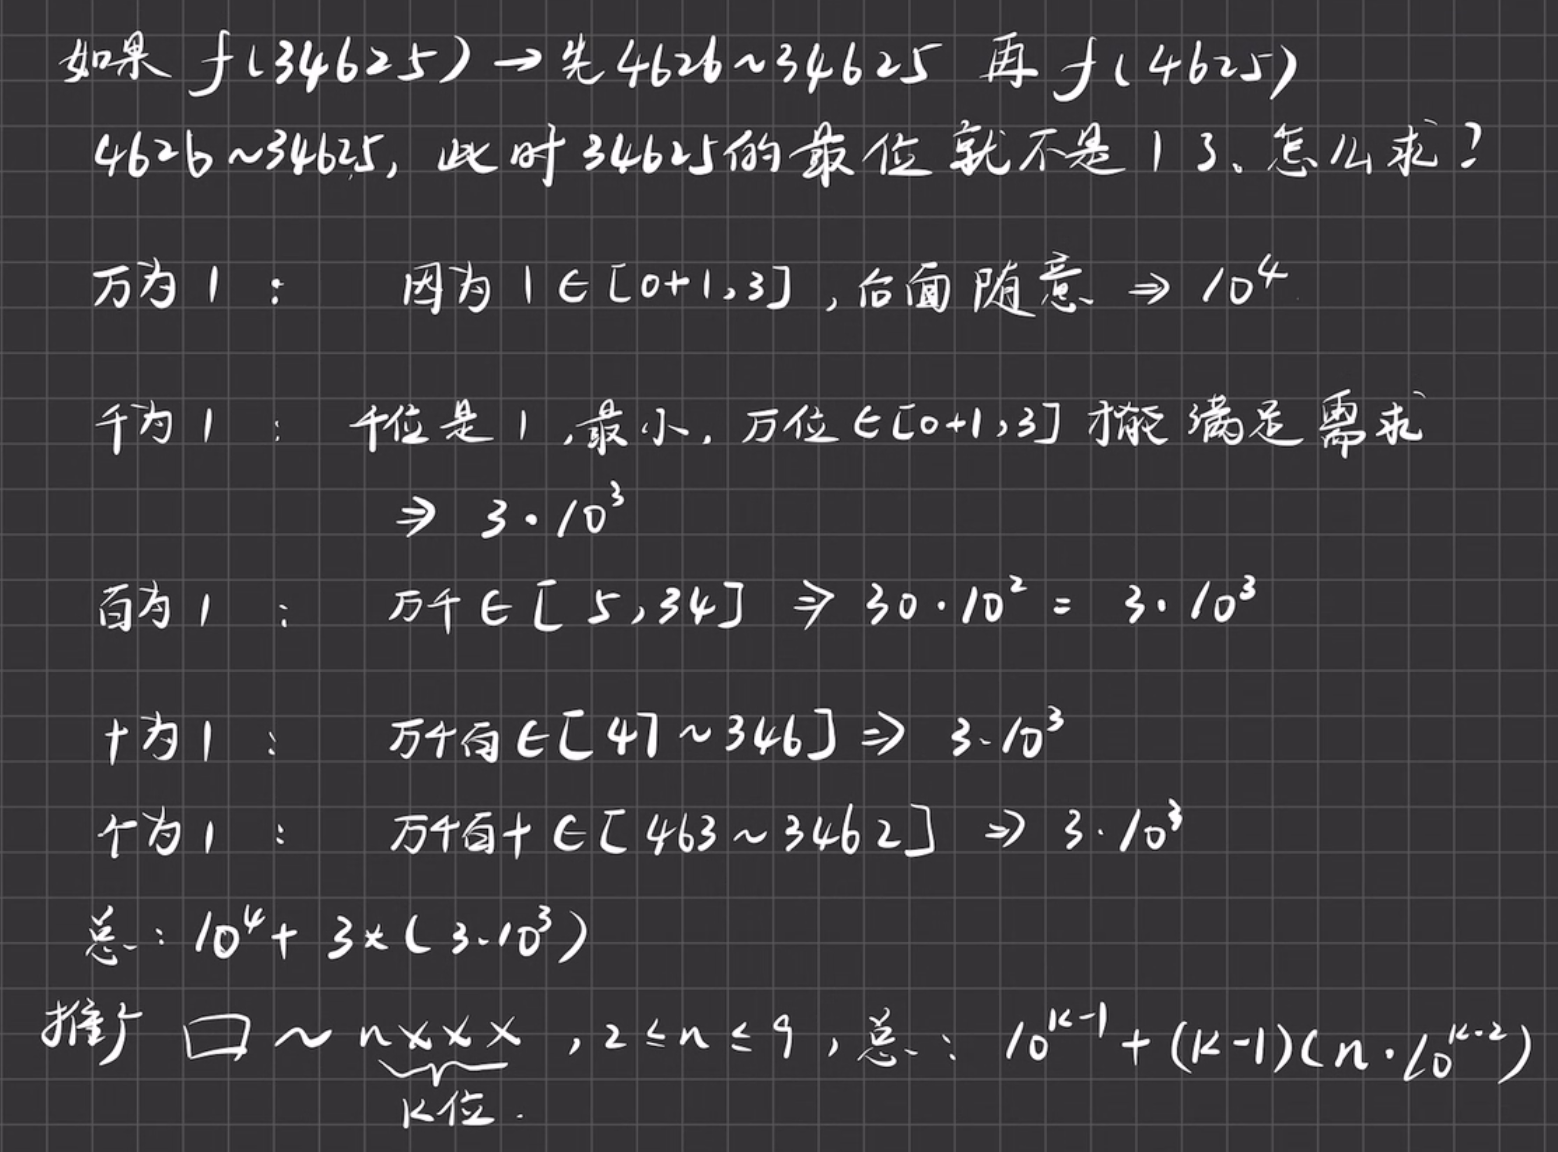 如果 f(34625) → 先 4626 ~ 34625 再 f(4625)
4626 ~ 34625, 此时 34625 的最位就不是 1 了。怎么求？
万为 1 : 因为 1 ∈ [0+1,3] , 后面随意 ⇒ 10^4
千为 1 : 千位是 1 , 最小, 万位 ∈ [0+1,3] 才能满足需求
⇒ 3·10^3
百为 1 : 万千 ∈ [5,34] ⇒ 30·10^2 = 3·10^3
十为 1 : 万千百 ∈ [47 ~ 346] ⇒ 3·10^3
个为 1 : 万千百十 ∈ [463 ~ 3462] ⇒ 3·10^3
总: 10^4 + 3×(3·10^3)
推广 □ ~ nxxx , 2 ≤ n ≤ 9 , 总: 10^{k-1} + (k-1)(n·10^{k-2})
k位.